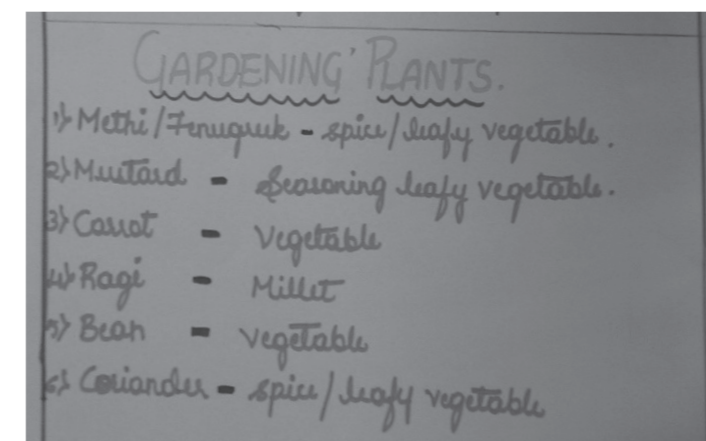 GARDENING PLANTS.
1) Methi/Fenugreek - spice/leafy vegetable.
2) Mustard - Seasoning leafy vegetable.
3) Carrot - Vegetable
4) Ragi - Millet
5) Bean - vegetable
6) Coriander - spice/leafy vegetable